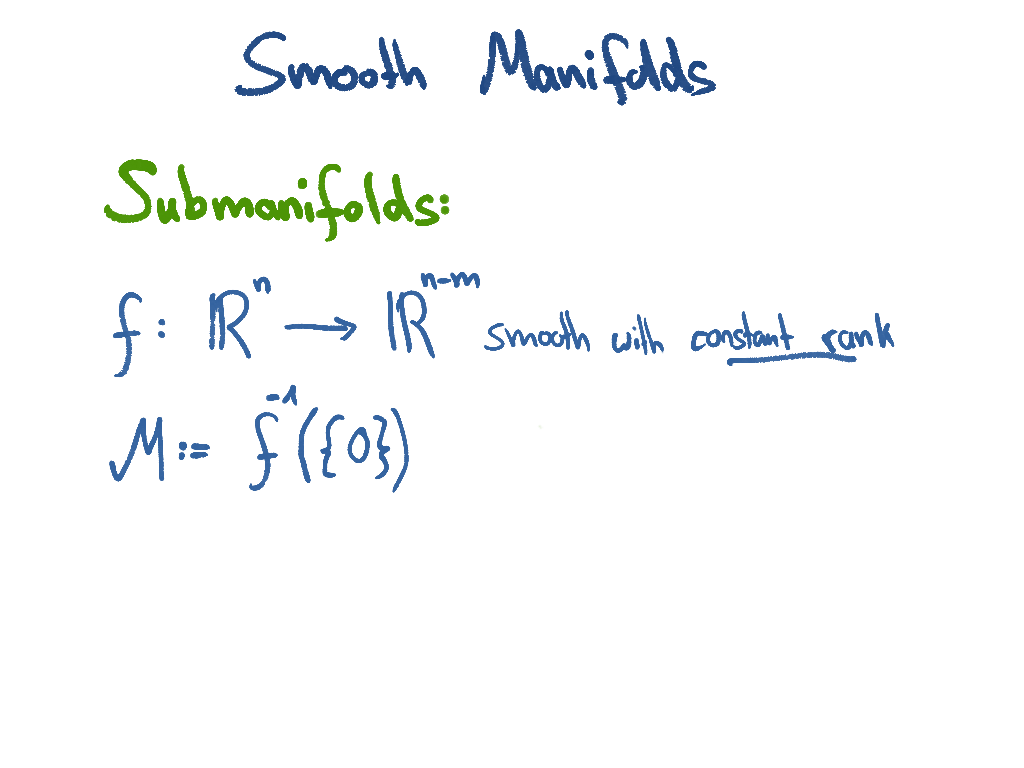 Smooth Manifolds
Submanifolds:
f: ℝⁿ ⟶ ℝⁿ⁻ᵐ smooth with constant rank
M := f⁻¹({0})